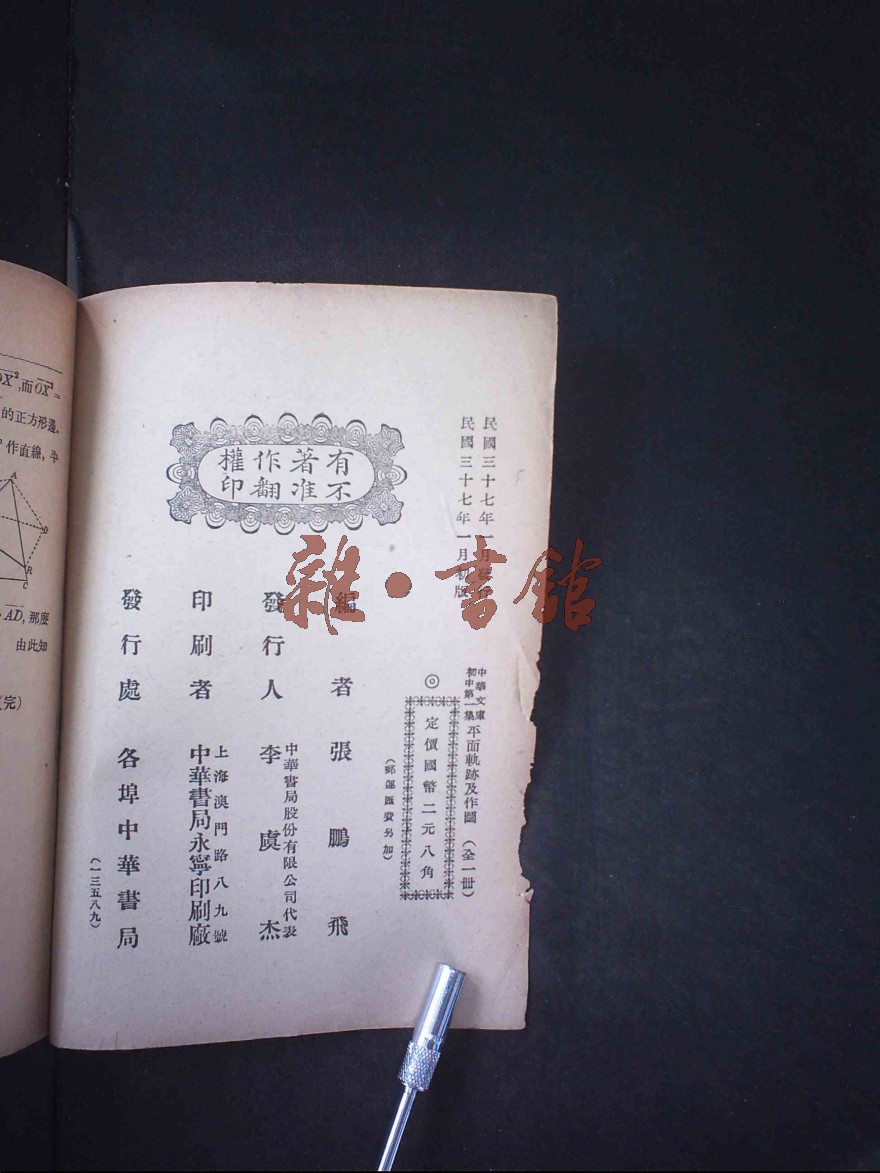 民國三十七年一月發行
民國三十七年一月初版
中華文庫
初中第一集
平面軌跡及作圖（全一冊）
◎
定價國幣二元八角
（郵運匯費另加）
有著作權
不准翻印
編者 張鵬飛
發行人 李虞杰
中華書局股份有限公司代表
印刷者
上海澳門路八九號
中華書局永寧印刷廠
發行處 各埠中華書局
（一三五八九）
雜·書館
OX²,而OX²=
的正方形邊.
作直線,平
A
D
B
C
AD, 那麼
由此知
(完)